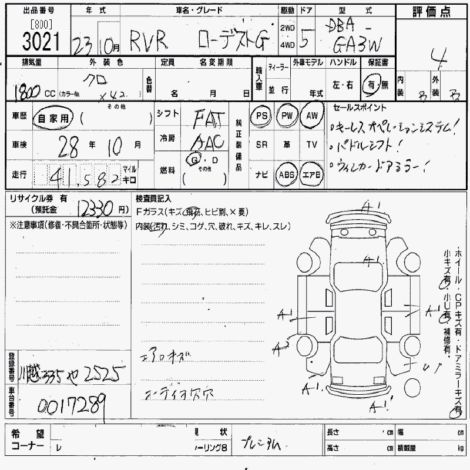 出品番号 年式 車名・グレード 駆動 ドア 型式 評価点
[800]
3021 23年10月 RVR ローデストG 2WD 4WD 5 DBA- GA3W 4
排気量 外装色 色替 定員 名変期限 輸入車 ディーラー 外車モデル ハンドル 保証書
1800 CC クロ (カラーNo. X42) 名 月 日 並行 年式 左・右 有・無 内装 B 外装 B
車歴 自家用 (その他) シフト FAT 純正装備品 PS PW AW セールスポイント
車検 28年10月 冷房 AAC SR 革 TV ・キーレスオペレーションシステム!
・パドルシフト!
走行 41,582 マイル キロ 燃料 G・D (その他) ナビ ABS エアB ・ウィンカードアミラー!
リサイクル券 有 (預託金 12330円) 検査員記入
※注意事項(修復・不具合箇所・欠品状態等) Fガラス(キズ,飛石,ヒビ割,×要)
内装(汚れ,シミ,コゲ,穴,破れ,キズ,キレ,スレ)
A1
A1 A1
A1 A1
A1
A1
エアロキズ
オーディオ穴穴
・ホイール・CPキズ有・ドアミラーキズ有
小キズ有・小凹有・補修有
登録番号 川越 335 や 2525
車台番号 0017289
希望コーナー レ 現状 ーリング8 プレミアム 長さ cm 幅 cm
高さ cm 積載量 kg